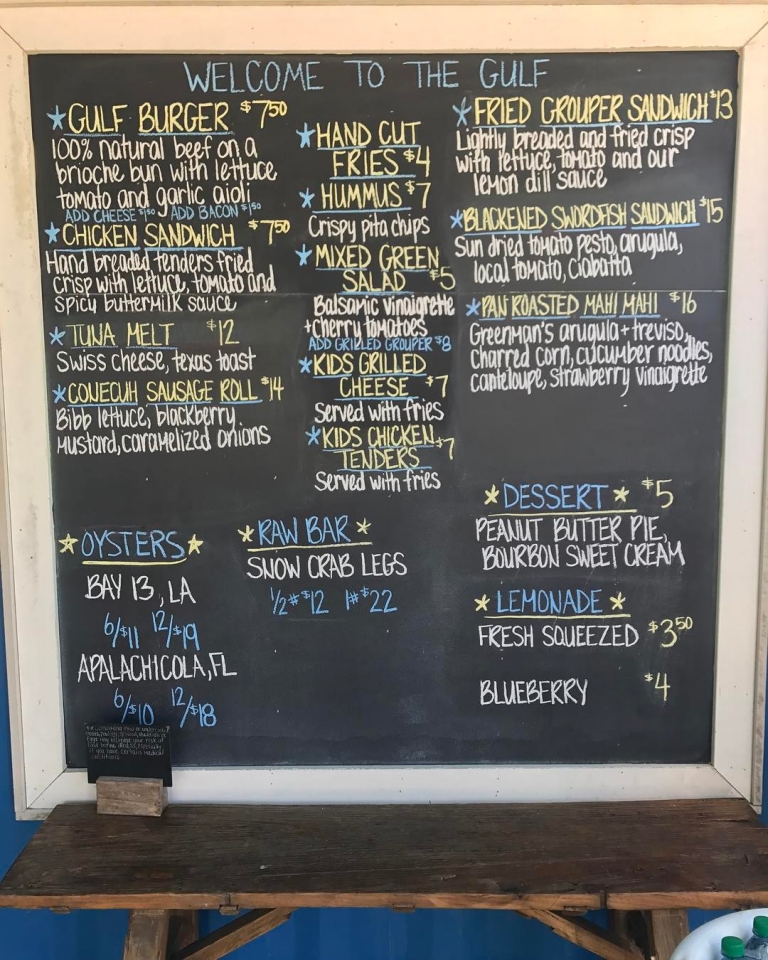 WELCOME TO THE GULF
★GULF BURGER $7.50
100% natural beef on a
brioche bun with lettuce
tomato and garlic aioli
ADD CHEESE $1.50 ADD BACON $1.50
★CHICKEN SANDWICH $7.50
Hand breaded tenders fried
crisp with lettuce, tomato and
spicy buttermilk sauce
★TUNA MELT $12
Swiss cheese, texas toast
★CONECUH SAUSAGE ROLL $14
Bibb lettuce, blackberry
mustard, caramelized onions
★HAND CUT
FRIES $4
★HUMMUS $7
Crispy pita chips
★MIXED GREEN
SALAD $5
Balsamic vinaigrette
+cherry tomatoes
ADD GRILLED GROUPER $8
★KIDS GRILLED
CHEESE $7
Served with fries
★KIDS CHICKEN
TENDERS $7
Served with fries
★FRIED GROUPER SANDWICH $13
Lightly breaded and fried crisp
with lettuce, tomato and our
lemon dill sauce
★BLACKENED SWORDFISH SANDWICH $15
Sun dried tomato pesto, arugula,
local tomato, ciabatta
★PAN ROASTED MAHI MAHI $16
Greenman's arugula+treviso,
charred corn, cucumber noodles,
canteloupe, strawberry vinaigrette
★OYSTERS★
BAY 13, LA
6/$11 12/$19
APALACHICOLA, FL
6/$10 12/$18
★RAW BAR★
SNOW CRAB LEGS
1/2# $12 1# $22
★DESSERT★ $5
PEANUT BUTTER PIE,
BOURBON SWEET CREAM
★LEMONADE★
FRESH SQUEEZED $3.50
BLUEBERRY $4